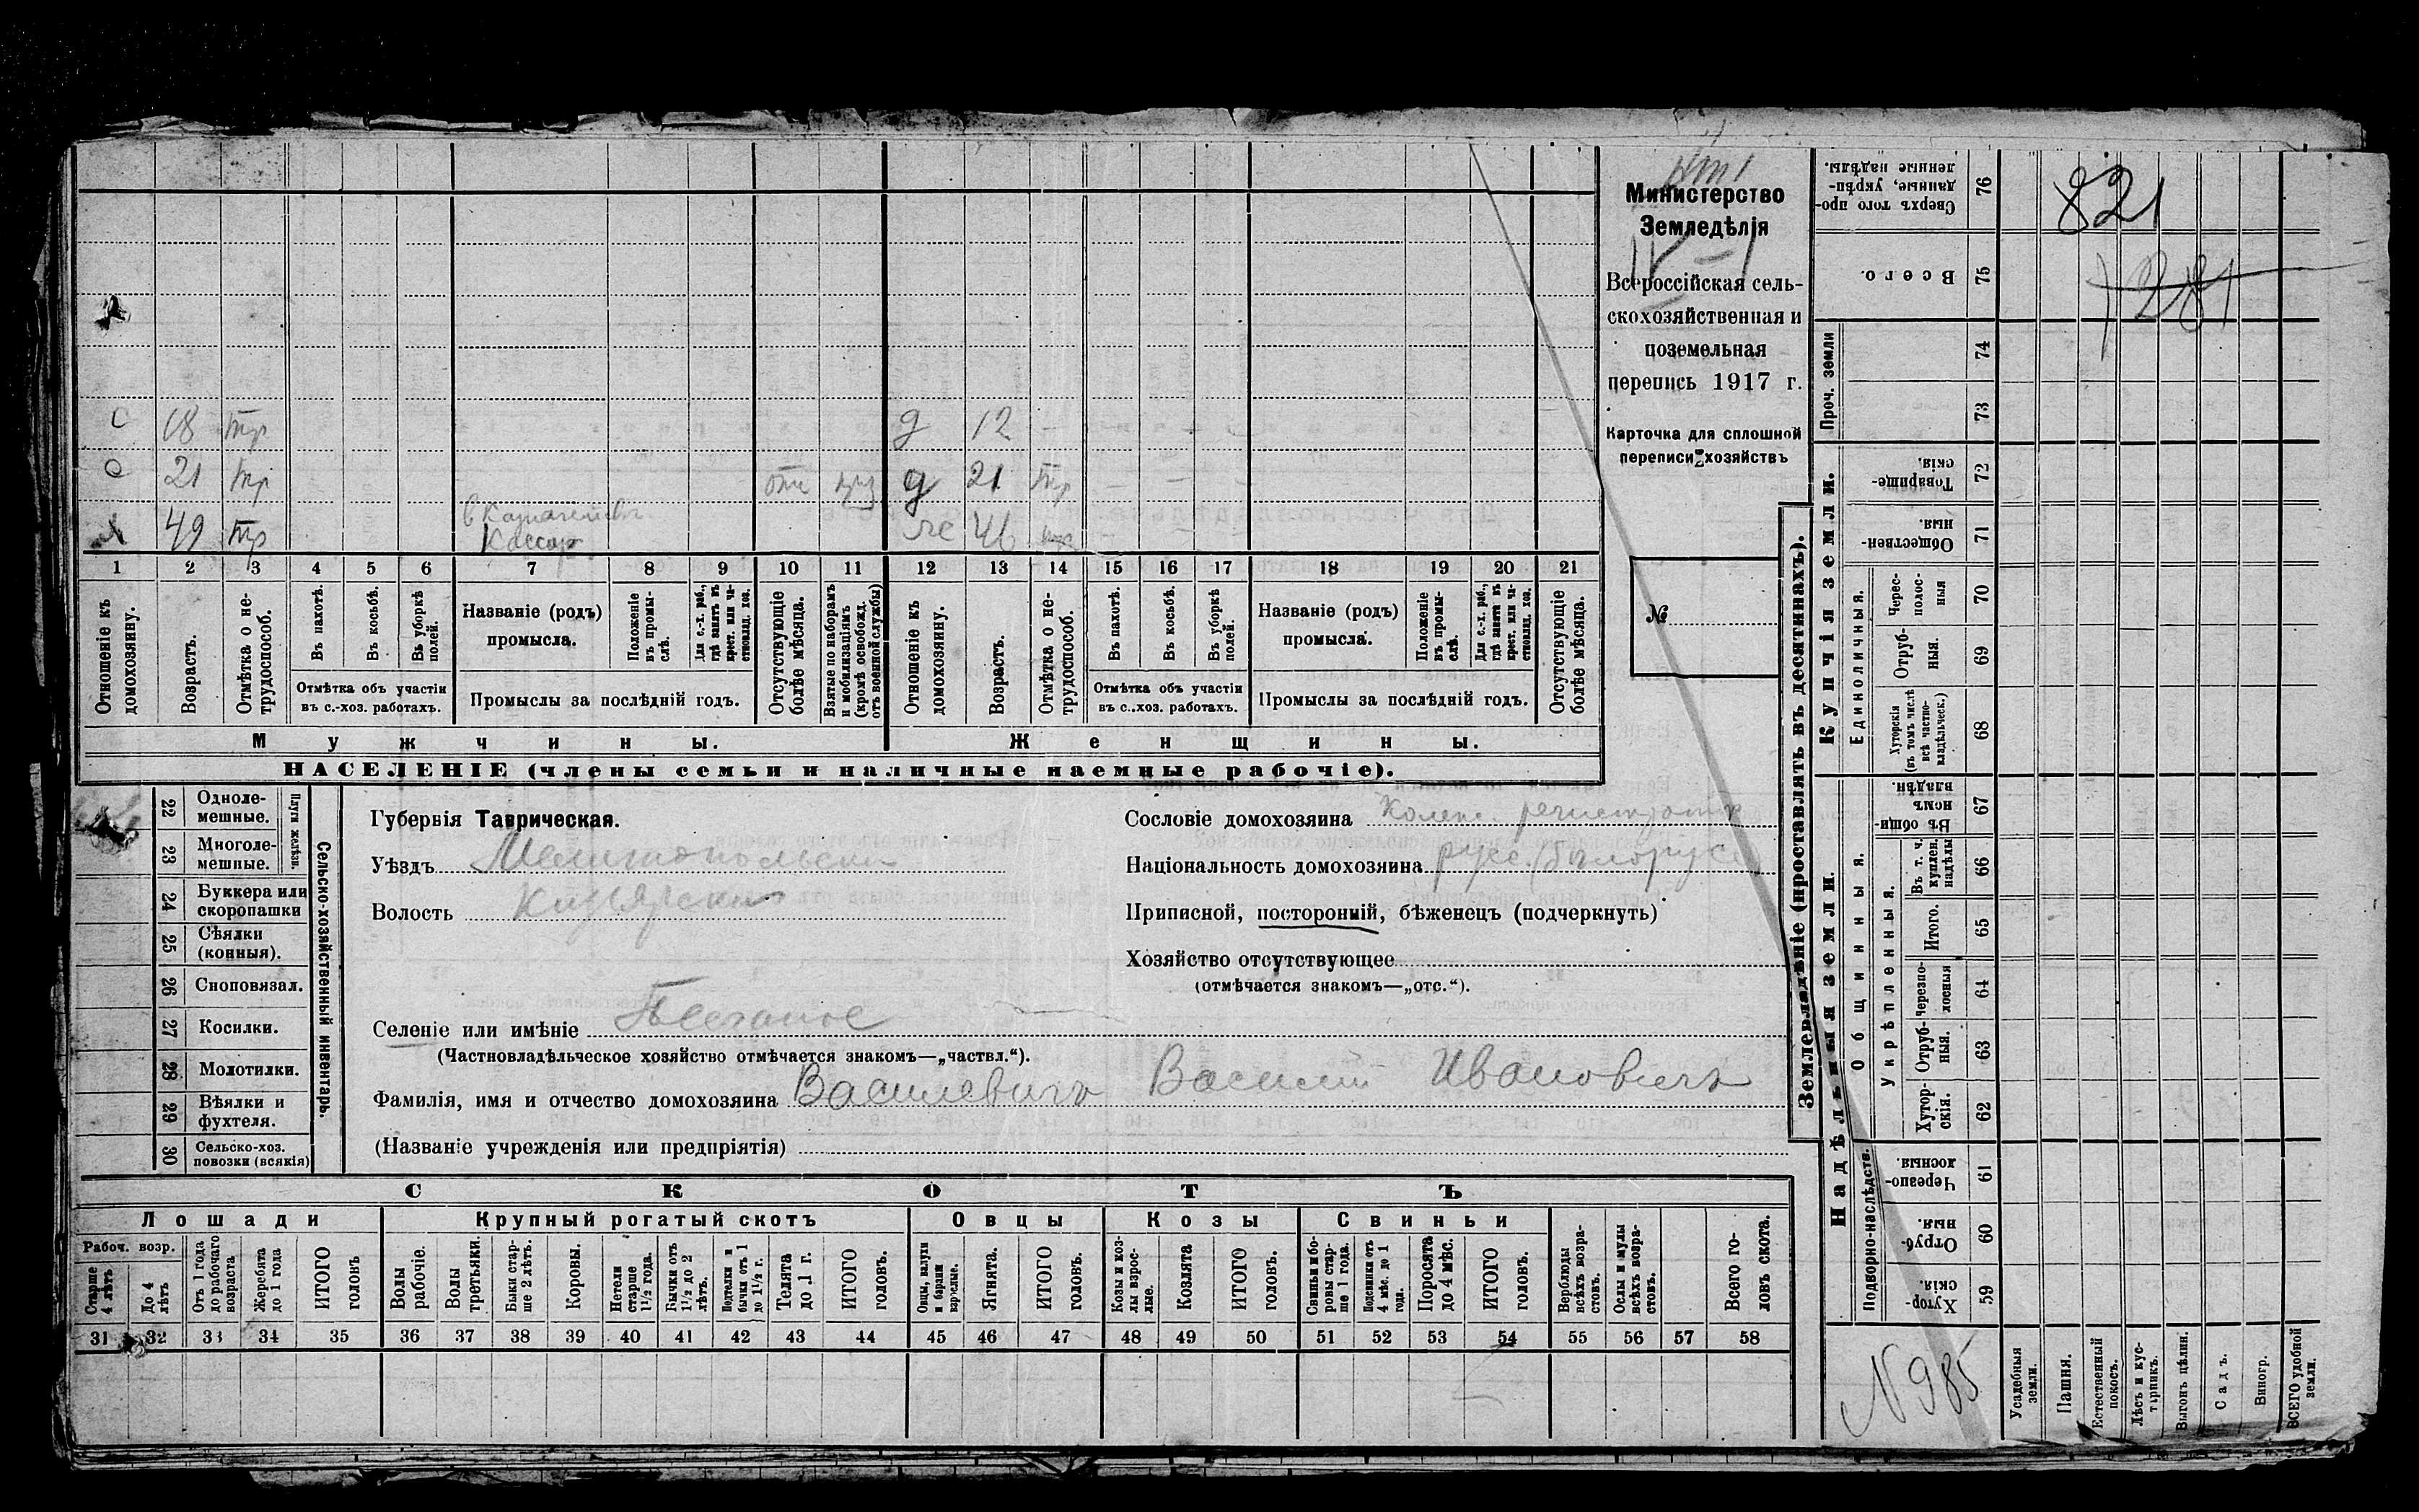 Министерство
Земледѣлія
IV – 1
Всероссійская сель-
скохозяйственная и
поземельная
перепись 1917 г.
Карточка для сплошной
переписи хозяйствъ
№
821
1281
с 18 тр д 12 –
с 21 тр д 21 тр – – –
я 49 тр Кассир ж 46 – – –
1 2 3 4 5 6 7 8 9 10 11 12 13 14 15 16 17 18 19 20 21
Отношеніе къ домохозяину.
Возрастъ.
Отмѣтка о не-трудоспособ.
Въ пахотѣ.
Въ косьбѣ.
Въ уборкѣ полей.
Отмѣтка объ участіи
въ с.-хоз. работахъ.
Названіе (родъ)
промысла.
Положеніе въ промы-слѣ.
Для с.-х. раб., гдѣ занятъ въ крест. или ча-стновлад. хоз.
Промыслы за послѣдній годъ.
Отсутствующіе болѣе мѣсяца.
Взятые по наборамъ и мобилизаціямъ (кромѣ освобожд. отъ военной службы)
Отношеніе къ домохозяину.
Возрастъ.
Отмѣтка о не-трудоспособ.
Въ пахотѣ.
Въ косьбѣ.
Въ уборкѣ полей.
Отмѣтка объ участіи
въ с.-хоз. работахъ.
Названіе (родъ)
промысла.
Положеніе въ промы-слѣ.
Для с.-х. раб., гдѣ занята въ крест. или ча-стновлад. хоз.
Промыслы за послѣдній годъ.
Отсутствующіе болѣе мѣсяца.
Мужчины.
Женщины.
НАСЕЛЕНІЕ (члены семьи и наличные наемные рабочіе).
Сельско-хозяйственный инвентарь.
Плуги желѣзн.
22 Одноле-мешные.
23 Многоле-мешные.
24 Буккера или скоропашки
25 Сѣялки (конныя).
26 Сноповязал.
27 Косилки.
28 Молотилки.
29 Вѣялки и фухтеля.
30 Сельско-хоз. повозки (всякія)
Губернія Таврическая.
Уѣздъ Мелитопольский
Волость Кизіярская
Селеніе или имѣніе Песчаное
(Частновладѣльческое хозяйство отмѣчается знакомъ—„частвл.“).
Фамилія, имя и отчество домохозяина Василевичъ Василий Ивановичъ
(Названіе учрежденія или предпріятія)
Сословіе домохозяина Колеж. регистратор
Національность домохозяина русс. (бѣлорусс)
Приписной, посторонній, бѣженецъ (подчеркнуть)
Хозяйство отсутствующее
(отмѣчается знакомъ—„отс.“).
СКОТЪ
Лошади
Крупный рогатый скотъ
Овцы
Козы
Свиньи
Рабоч. возр.
Старше 4 лѣтъ
До 4 лѣтъ
Отъ 1 года до рабочаго возраста
Жеребята до 1 года
ИТОГО головъ
Волы рабочіе.
Волы третьяки.
Быки стар-ше 2 лѣтъ.
Коровы.
Нетели старше 1½ года.
Бычки отъ 1½ до 2 лѣтъ.
Подтелки и бычки отъ 1 до 1½ г.
Телята до 1 г.
ИТОГО головъ.
Овцы, валухи и бараны взрослые.
Ягнята.
ИТОГО головъ.
Козы и коз-лы взрос-лые.
Козлята
ИТОГО головъ.
Свиньи и бо-ровы стар-ше 1 года.
Подсвинки отъ 4 мѣс. до 1 года.
Поросята до 4 мѣс.
ИТОГО головъ.
Верблюды всѣхъ возра-стовъ.
Ослы и мулы всѣхъ возра-стовъ.
Всего го-ловъ скота.
31 32 33 34 35 36 37 38 39 40 41 42 43 44 45 46 47 48 49 50 51 52 53 54 55 56 57 58
Землевладѣніе (проставлять въ десятинахъ).
Купчія земли.
Надѣльныя земли.
Сверхъ того про-данные, укрѣп-ленные надѣлы. 76
Всего. 75
Проч. земли
74
73
Товарище-скія. 72
Обществен-ныя. 71
Единоличныя.
Черес-полос-ныя 70
Отруб-ныя. 69
Хуторскія (въ томъ числѣ всѣ частно-владѣльческ.) 68
Общинныя.
Въ общин-номъ владѣн. 67
Укрѣпленныя.
Въ т. ч. куплен. надѣлы 66
Итого. 65
Черезпо-лосныя 64
Отруб-ныя. 63
Хутор-скія. 62
Подворно-наслѣдств.
Черезпо-лосныя 61
Отруб-ныя. 60
Хутор-скія. 59
N 985
Усадебныя земли.
Пашня.
Естественный покосъ.
Лѣсъ и кус-тарникъ.
Выгонъ цѣлин.
Садъ.
Виногр.
ВСЕГО удобной земли.